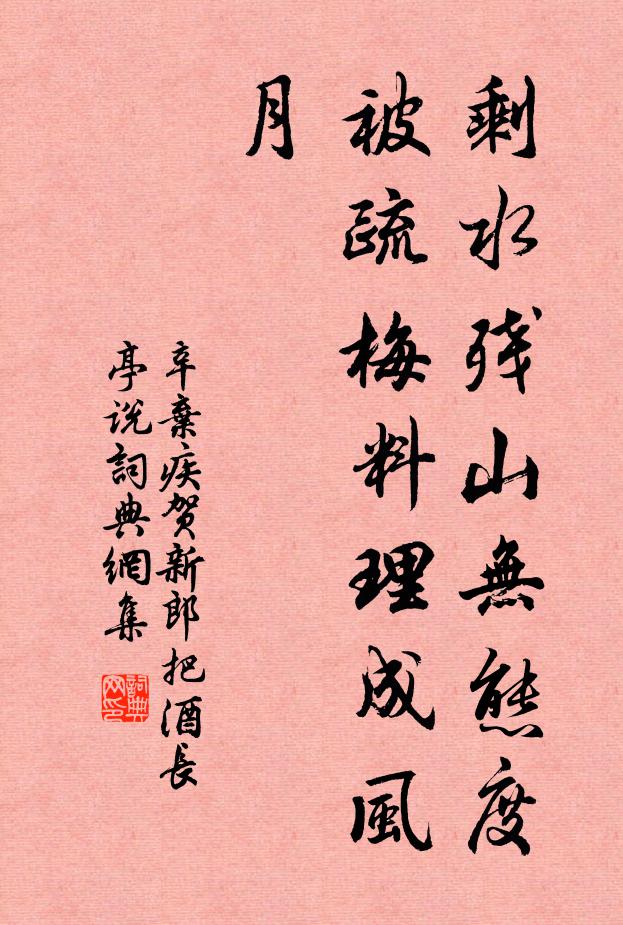 剩水残山無態度
被疏梅料理成風
月
辛棄疾贺新郎把酒長
亭说詞典網集
詞典
网印